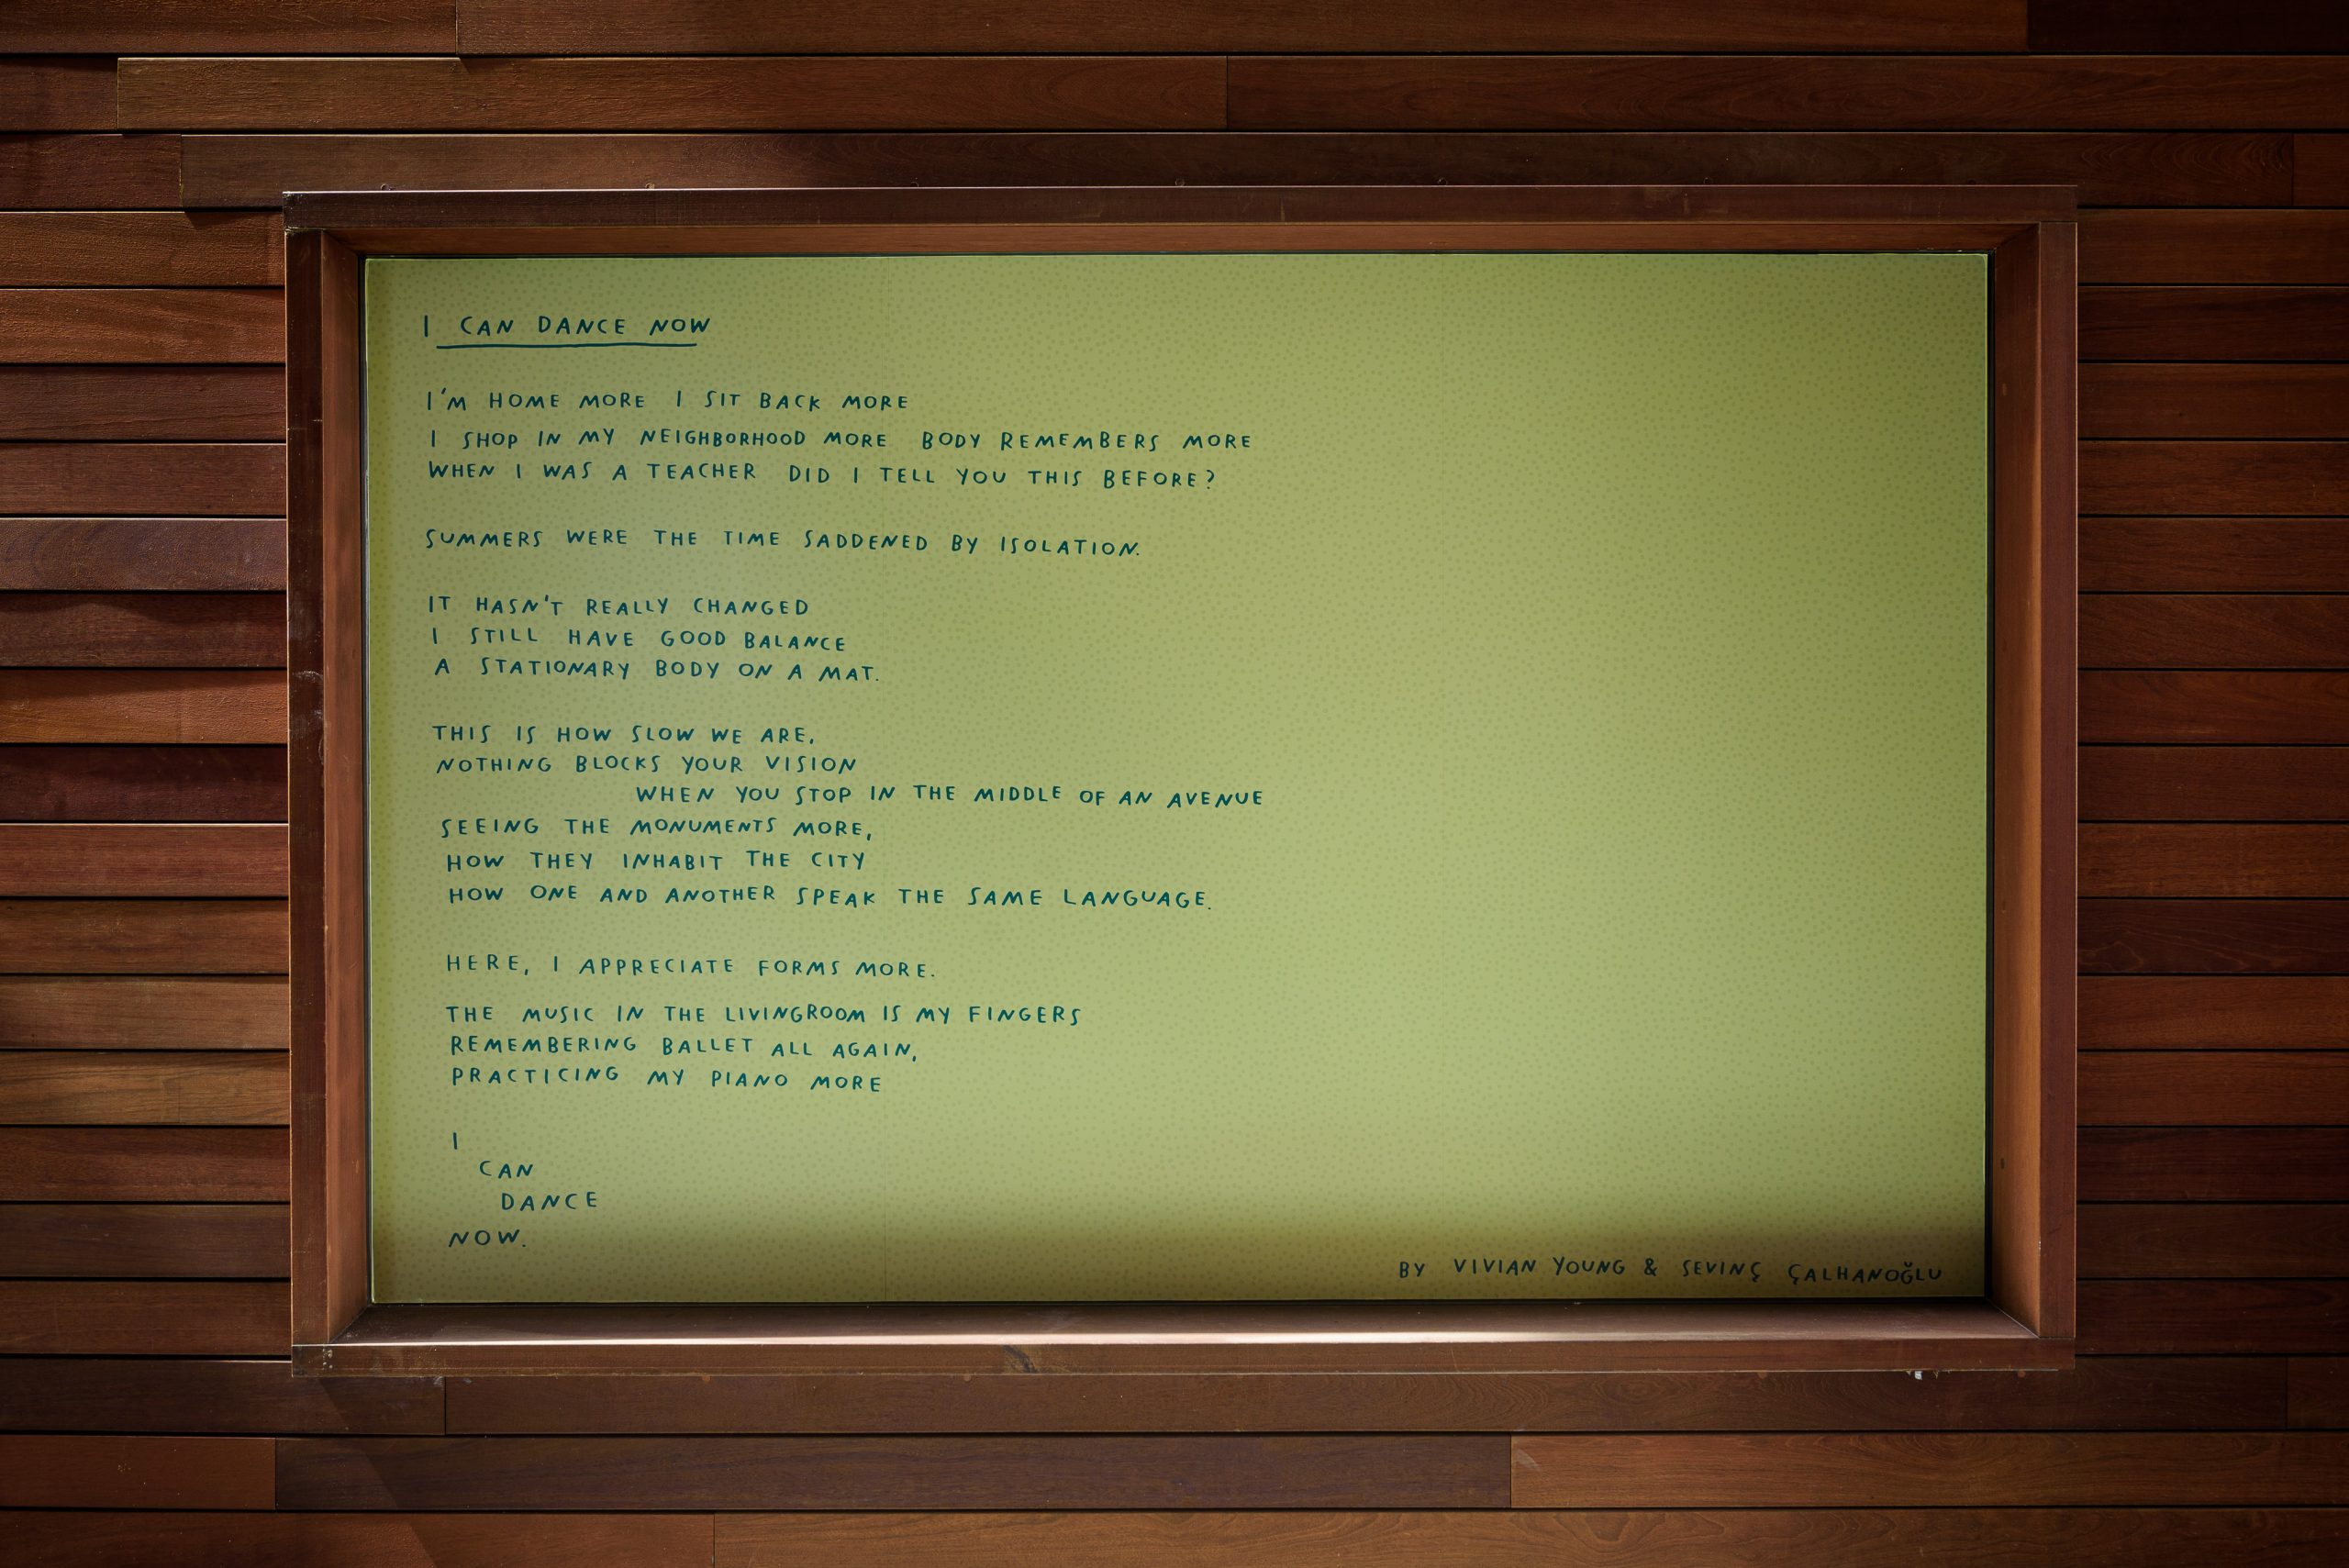 I CAN DANCE NOW
I'M HOME MORE I SIT BACK MORE
I SHOP IN MY NEIGHBORHOOD MORE BODY REMEMBERS MORE
WHEN I WAS A TEACHER DID I TELL YOU THIS BEFORE?
SUMMERS WERE THE TIME SADDENED BY ISOLATION.
IT HASN'T REALLY CHANGED
I STILL HAVE GOOD BALANCE
A STATIONARY BODY ON A MAT.
THIS IS HOW SLOW WE ARE,
NOTHING BLOCKS YOUR VISION
WHEN YOU STOP IN THE MIDDLE OF AN AVENUE
SEEING THE MONUMENTS MORE,
HOW THEY INHABIT THE CITY
HOW ONE AND ANOTHER SPEAK THE SAME LANGUAGE.
HERE, I APPRECIATE FORMS MORE.
THE MUSIC IN THE LIVINGROOM IS MY FINGERS
REMEMBERING BALLET ALL AGAIN,
PRACTICING MY PIANO MORE
I
CAN
DANCE
NOW.
BY VIVIAN YOUNG & SEVINÇ ÇALHANOĞLU